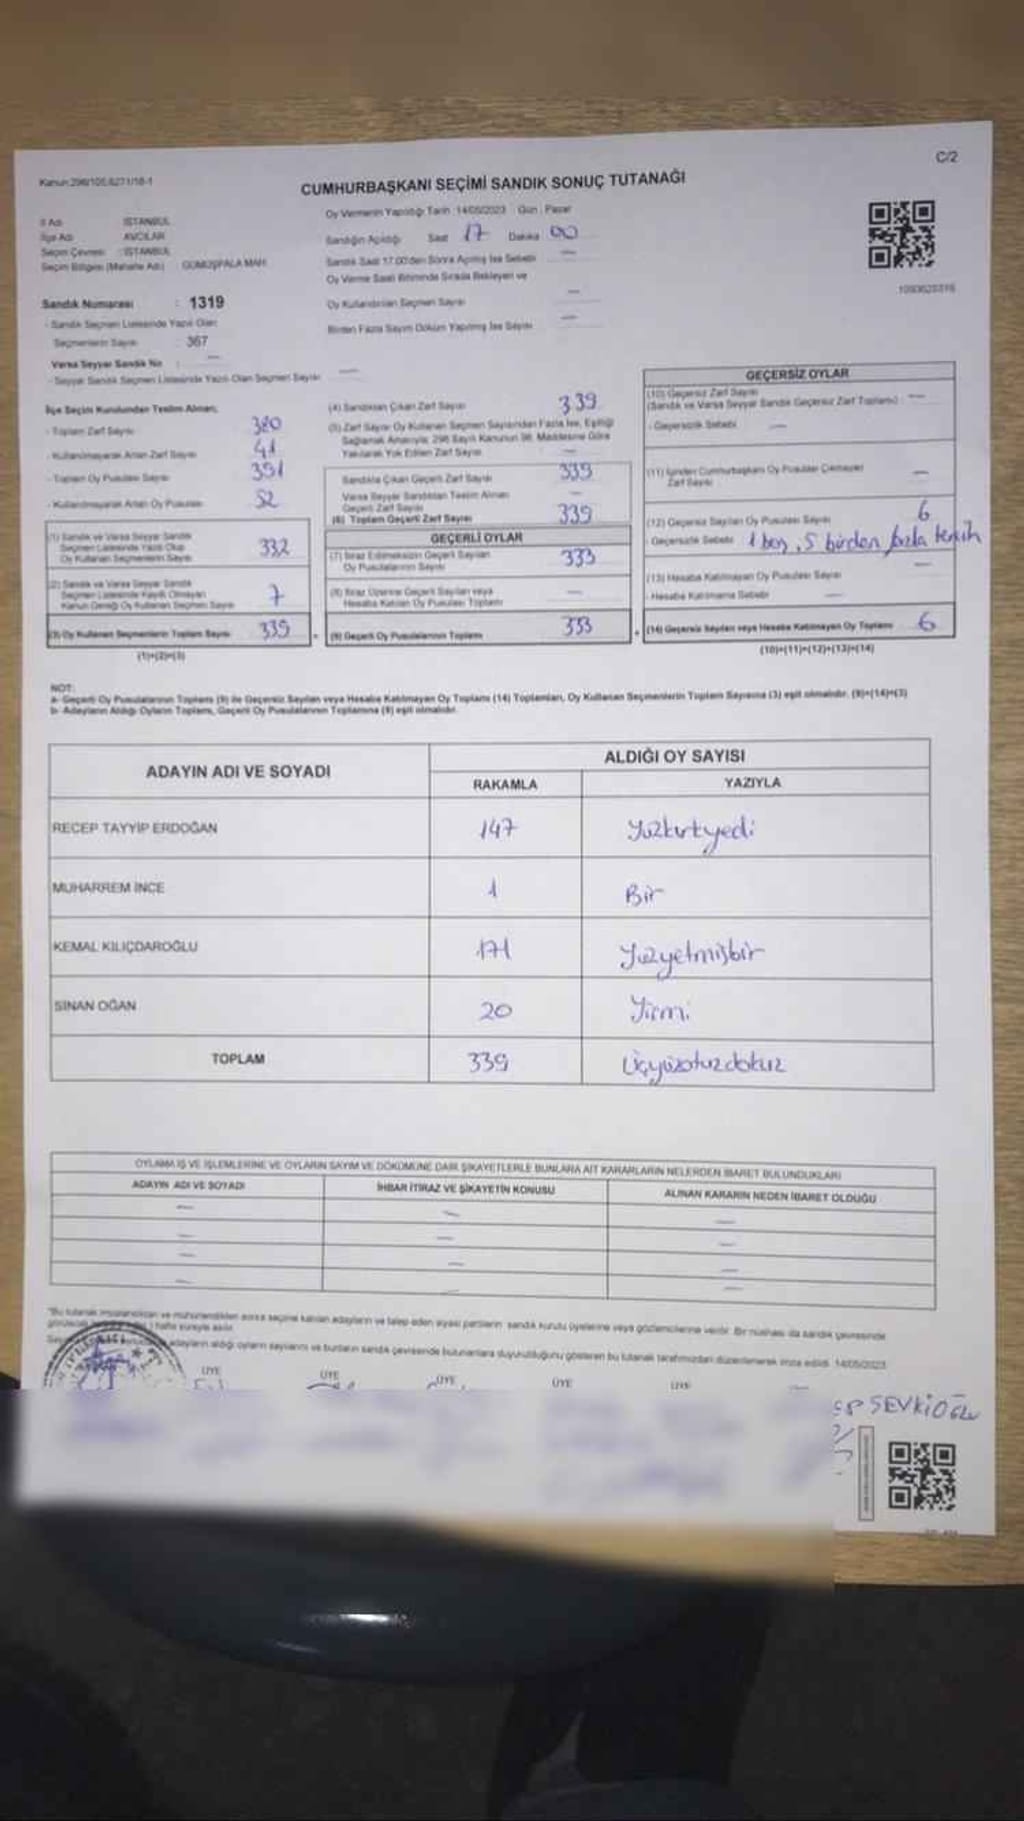 C/2
Kanun:298/105,6271/18-1
CUMHURBAŞKANI SEÇİMİ SANDIK SONUÇ TUTANAĞI
Oy Vermenin Yapıldığı Tarih :14/05/2023 Gün : Pazar
İl Adı : İSTANBUL
İlçe Adı : AVCILAR
Seçim Çevresi : İSTANBUL
Seçim Bölgesi (Mahalle Adı) : GÜMÜŞPALA MAH.
Sandığın Açıldığı Saat 17 Dakika 00
Sandık Saat 17:00'den Sonra Açılmış İse Sebebi —
Oy Verme Saati Bitiminde Sırada Bekleyen ve
Oy Kullandırılan Seçmen Sayısı —
Birden Fazla Sayım Döküm Yapılmış İse Sayısı —
Sandık Numarası : 1319
- Sandık Seçmen Listesinde Yazılı Olan
Seçmenlerin Sayısı 367
Varsa Seyyar Sandık No : —
- Seyyar Sandık Seçmen Listesinde Yazılı Olan Seçmen Sayısı —
İlçe Seçim Kurulundan Teslim Alınan;
- Toplam Zarf Sayısı 380
- Kullanılmayarak Artan Zarf Sayısı 41
- Toplam Oy Pusulası Sayısı 391
- Kullanılmayarak Artan Oy Pusulası 52
(1) Sandık ve Varsa Seyyar Sandık
Seçmen Listesinde Yazılı Olup
Oy Kullanan Seçmenlerin Sayısı 332
(2) Sandık ve Varsa Seyyar Sandık
Seçmen Listesinde Kayıtlı Olmayan
Kanun Gereği Oy Kullanan Seçmen Sayısı 7
(3) Oy Kullanan Seçmenlerin Toplam Sayısı 339
(1)+(2)=(3)
(4) Sandıktan Çıkan Zarf Sayısı 339
(5) Zarf Sayısı Oy Kullanan Seçmen Sayısından Fazla İse, Eşitliği
Sağlamak Amacıyla; 298 Sayılı Kanunun 98. Maddesine Göre
Yakılarak Yok Edilen Zarf Sayısı —
Sandıkta Çıkan Geçerli Zarf Sayısı 339
Varsa Seyyar Sandıktan Teslim Alınan
Geçerli Zarf Sayısı —
(6) Toplam Geçerli Zarf Sayısı 339
GEÇERLİ OYLAR
(7) İtiraz Edilmeksizin Geçerli Sayılan
Oy Pusulalarının Sayısı 333
(8) İtiraz Üzerine Geçerli Sayılan veya
Hesaba Katılan Oy Pusulası Toplamı —
(9) Geçerli Oy Pusulalarının Toplamı 333
GEÇERSİZ OYLAR
(10) Geçersiz Zarf Sayısı
(Sandık ve Varsa Seyyar Sandık Geçersiz Zarf Toplamı) —
- Geçersizlik Sebebi —
(11) İçinden Cumhurbaşkanı Oy Pusulası Çıkmayan
Zarf Sayısı —
(12) Geçersiz Sayılan Oy Pusulası Sayısı 6
- Geçersizlik Sebebi 1 boş, 5 birden fazla tercih
(13) Hesaba Katılmayan Oy Pusulası Sayısı —
- Hesaba Katılmama Sebebi —
(14) Geçersiz Sayılan veya Hesaba Katılmayan Oy Toplamı 6
(10)+(11)+(12)+(13)=(14)
NOT:
a- Geçerli Oy Pusulalarının Toplamı (9) ile Geçersiz Sayılan veya Hesaba Katılmayan Oy Toplamı (14) Toplamları, Oy Kullanan Seçmenlerin Toplam Sayısına (3) eşit olmalıdır. (9)+(14)=(3)
b- Adayların Aldığı Oyların Toplamı, Geçerli Oy Pusulalarının Toplamına (9) eşit olmalıdır.
ADAYIN ADI VE SOYADI
ALDIĞI OY SAYISI
RAKAMLA YAZIYLA
RECEP TAYYİP ERDOĞAN 147 Yüzkırkyedi
MUHARREM İNCE 1 Bir
KEMAL KILIÇDAROĞLU 171 Yüzyetmişbir
SİNAN OĞAN 20 Yirmi
TOPLAM 339 Üçyüzotuzdokuz
OYLAMA İŞ VE İŞLEMLERİNE VE OYLARIN SAYIM VE DÖKÜMÜNE DAİR ŞİKAYETLERLE BUNLARA AİT KARARLARIN NELERDEN İBARET BULUNDUKLARI
ADAYIN ADI VE SOYADI İHBAR İTİRAZ VE ŞİKAYETİN KONUSU ALINAN KARARIN NEDEN İBARET OLDUĞU
— — —
— — —
— — —
— — —
*Bu tutanak imzalandıktan ve mühürlendikten sonra seçime katılan adayların ve talep eden siyasi partilerin sandık kurulu üyelerine veya gözlemcilerine verilir. Bir nüshası da sandık çevresinde
hafta süreyle asılır.
adayların aldığı oyların sayılarını ve bunların sandık çevresinde bulunanlara duyurulduğunu gösteren bu tutanak tarafımızdan düzenlenerek imza edildi. 14/05/2023
ÜYE ÜYE ÜYE ÜYE ÜYE
SEVKİOĞLU